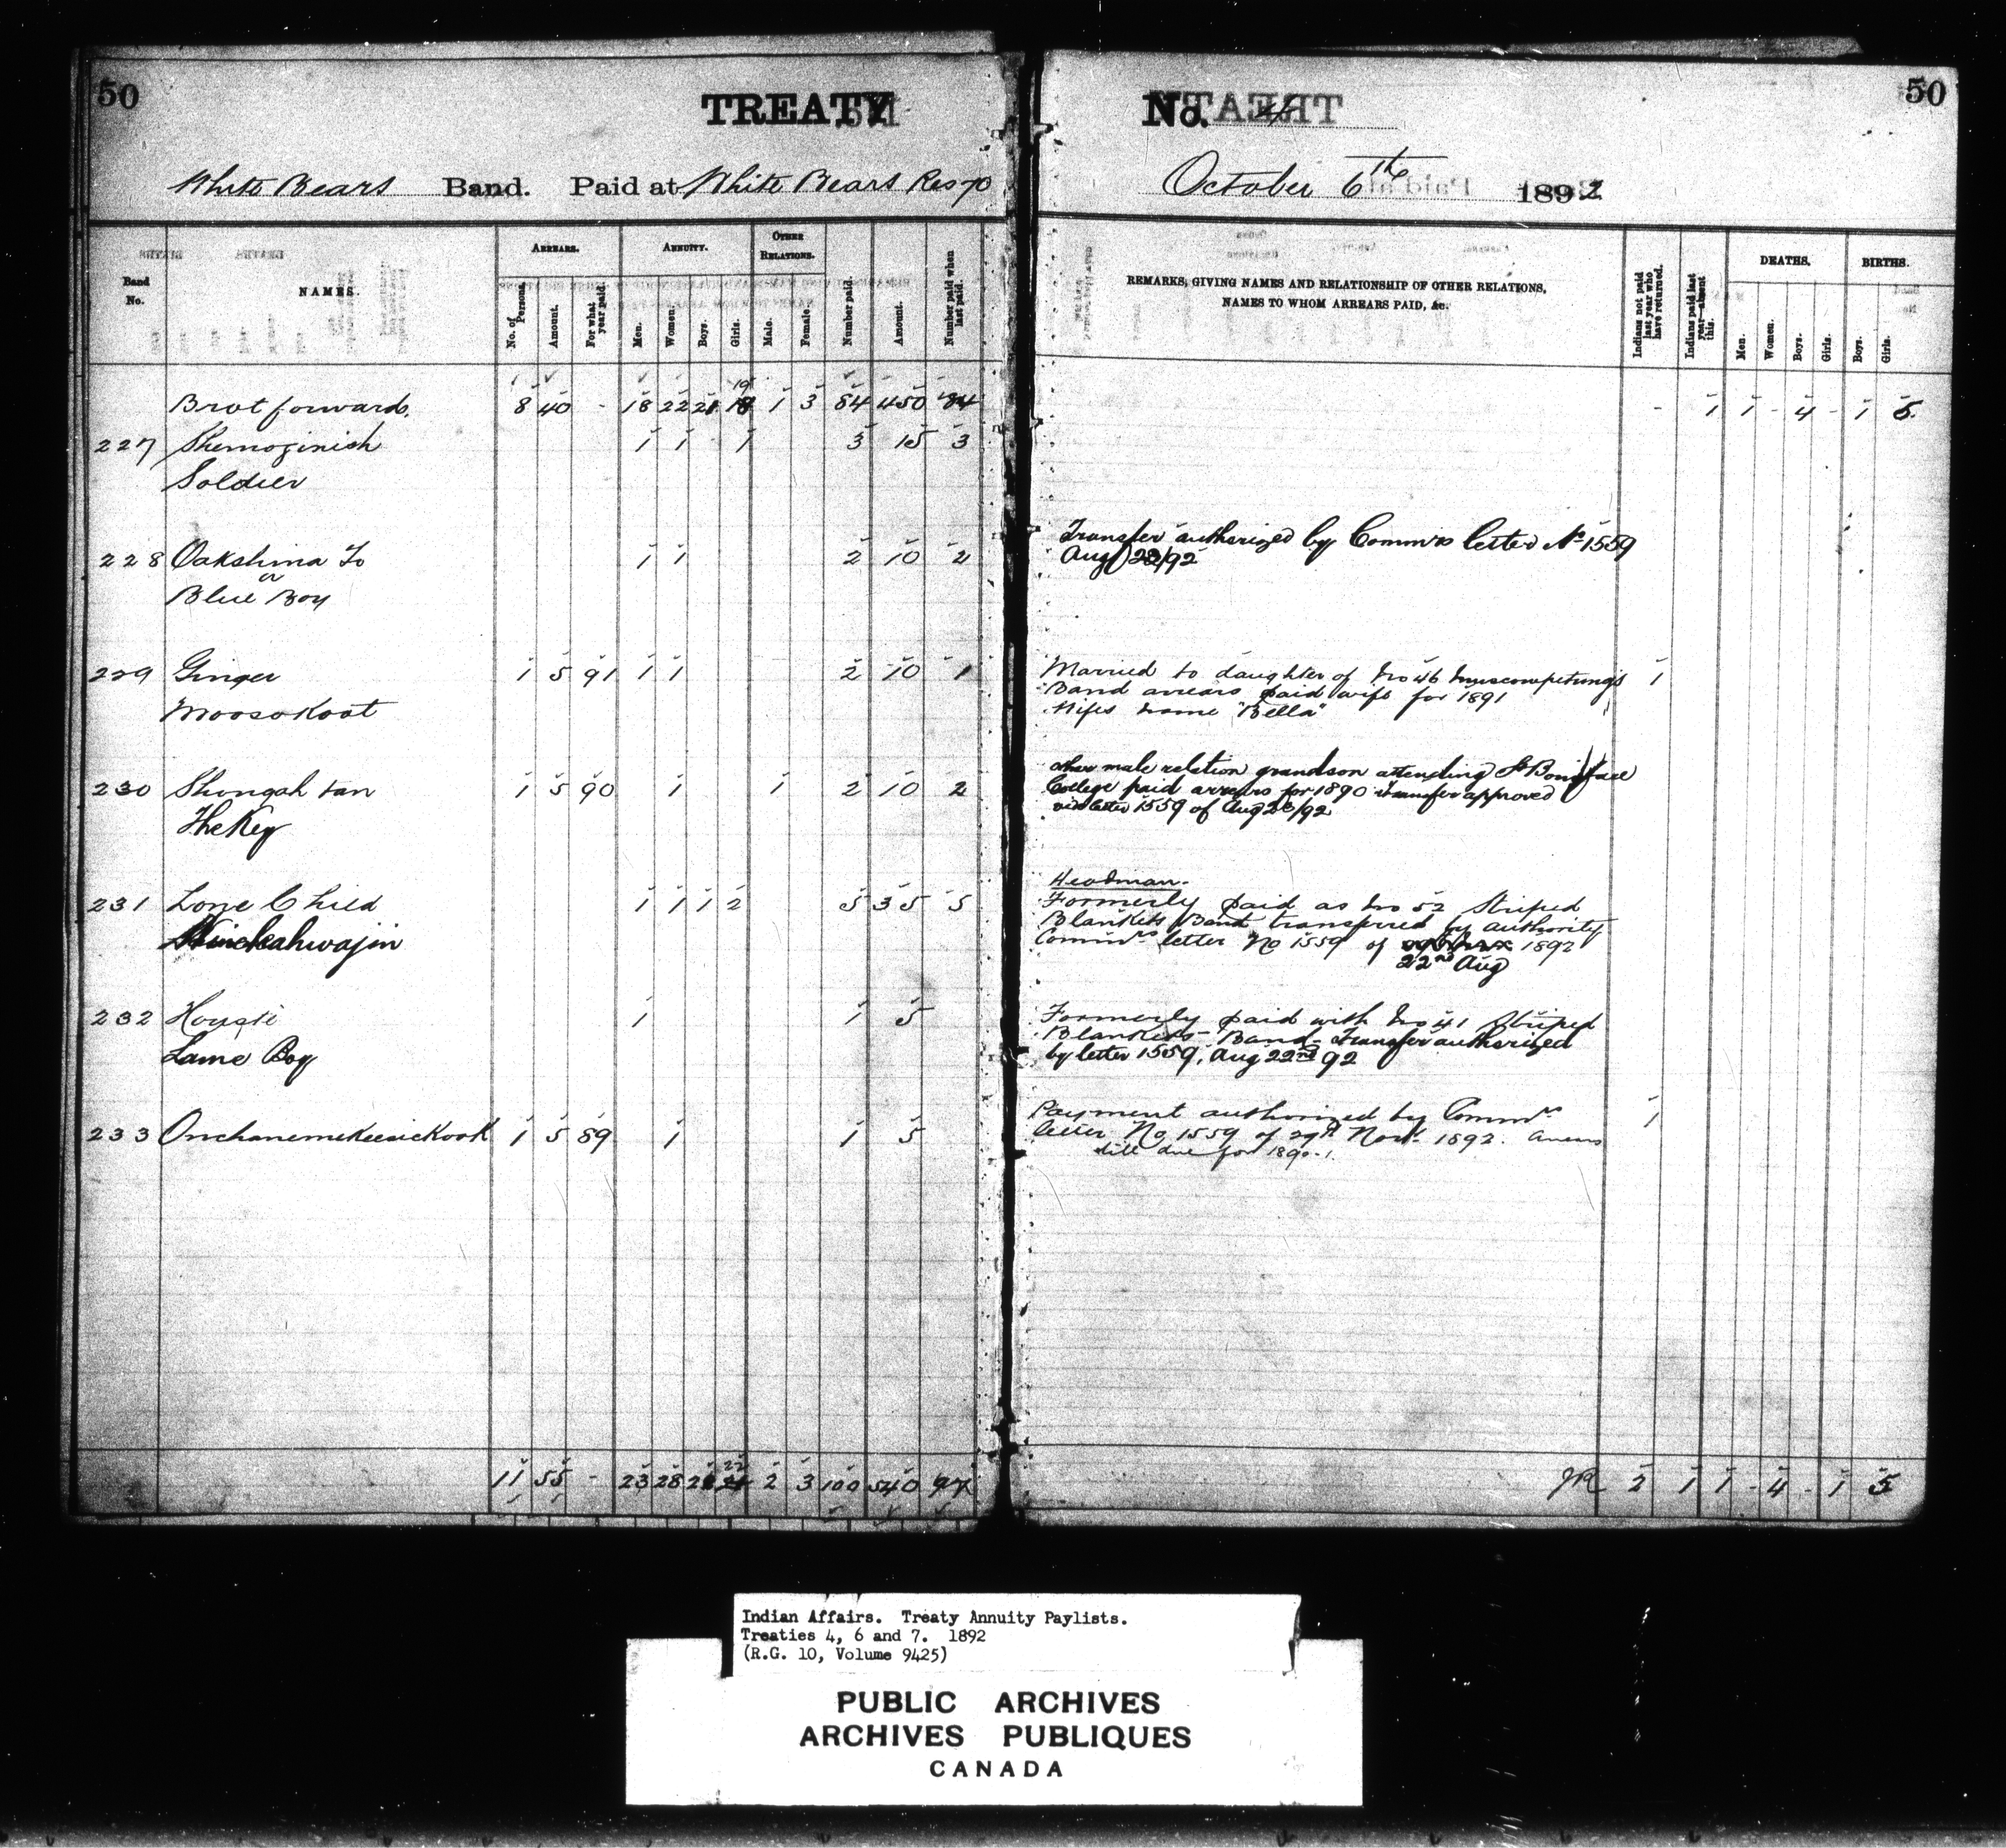 50
TREATY
White Bears Band. Paid at White Bears Res 70
Band No.
NAMES.
ARREARS.
No. of Persons.
Amount.
For what year paid.
ANNUITY.
Men.
Women.
Boys.
Girls.
OTHER RELATIONS.
Male.
Female.
Number paid.
Amount.
Number paid when last paid.
Brot forward. 8 40 - 18 22 21 19 1 3 84 450 84
227 Shemoginish 1 1 1 3 15 3
Soldier
228 Oakshina To 1 1 2 10 2
or
Blue Boy
229 Ginger 1 5 91 1 1 2 10 1
Moosokoot
230 Shongah tan 1 5 90 1 1 2 10 2
The Key
231 Lone Child 1 1 1 2 5 35 5
232 1 1 5
Lame Boy
233 Onchanemekeesickook 1 5 89 1 1 5
11 55 - 23 28 22 2 3 100 540 97
50
No. 4
October 6th 1892
REMARKS, GIVING NAMES AND RELATIONSHIP OF OTHER RELATIONS,
NAMES TO WHOM ARREARS PAID, &c.
Indians not paid last year who have returned.
Indians paid last year—absent this.
DEATHS.
Men.
Women.
Boys.
Girls.
BIRTHS.
Boys.
Girls.
- 1 1 - 4 - 1 5
Transfer authorized by Commrs letter No 1559
Aug 22/92
Married to daughter of No 46 1
Band arrears paid wife for 1891
Wifes name "Bella"
other male relation grandson attending St Boniface
College paid arrears for 1890 Transfer approved
vide letter 1559 of Aug 22/92
Headman.
Formerly paid as No 52 Striped
Blankets Band transferred by authority
Commrs letter No 1559 of 1892
22nd Aug
Formerly paid with No 41 Striped
Blankets Band - Transfer authorized
by letter 1559, Aug 22nd 92
Payment authorized by Commrs 1
letter No 1559 of 29th Novr 1892. Arrears
still due for 1890-1.
JR 2 1 1 - 4 - 1 5
Indian Affairs. Treaty Annuity Paylists.
Treaties 4, 6 and 7. 1892
(R.G. 10, Volume 9425)
PUBLIC ARCHIVES
ARCHIVES PUBLIQUES
CANADA